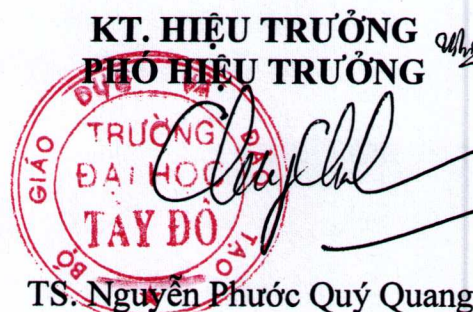 KT. HIỆU TRƯỞNG
PHÓ HIỆU TRƯỞNG
BỘ GIÁO DỤC VÀ ĐÀO TẠO
TRƯỜNG
ĐẠI HỌC
TÂY ĐÔ
TS. Nguyễn Phước Quý Quang